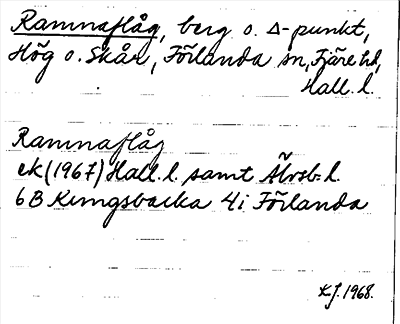 Ramnaflåg, berg o. ∆-punkt,
Hög o. Skår, Förlanda sn, Fjäre hd,
Hall. l.
Ramnaflåg
ek (1967) Hall. l. samt Älvsb. l.
6B Kungsbacka 4i Förlanda
KJ. 1968.